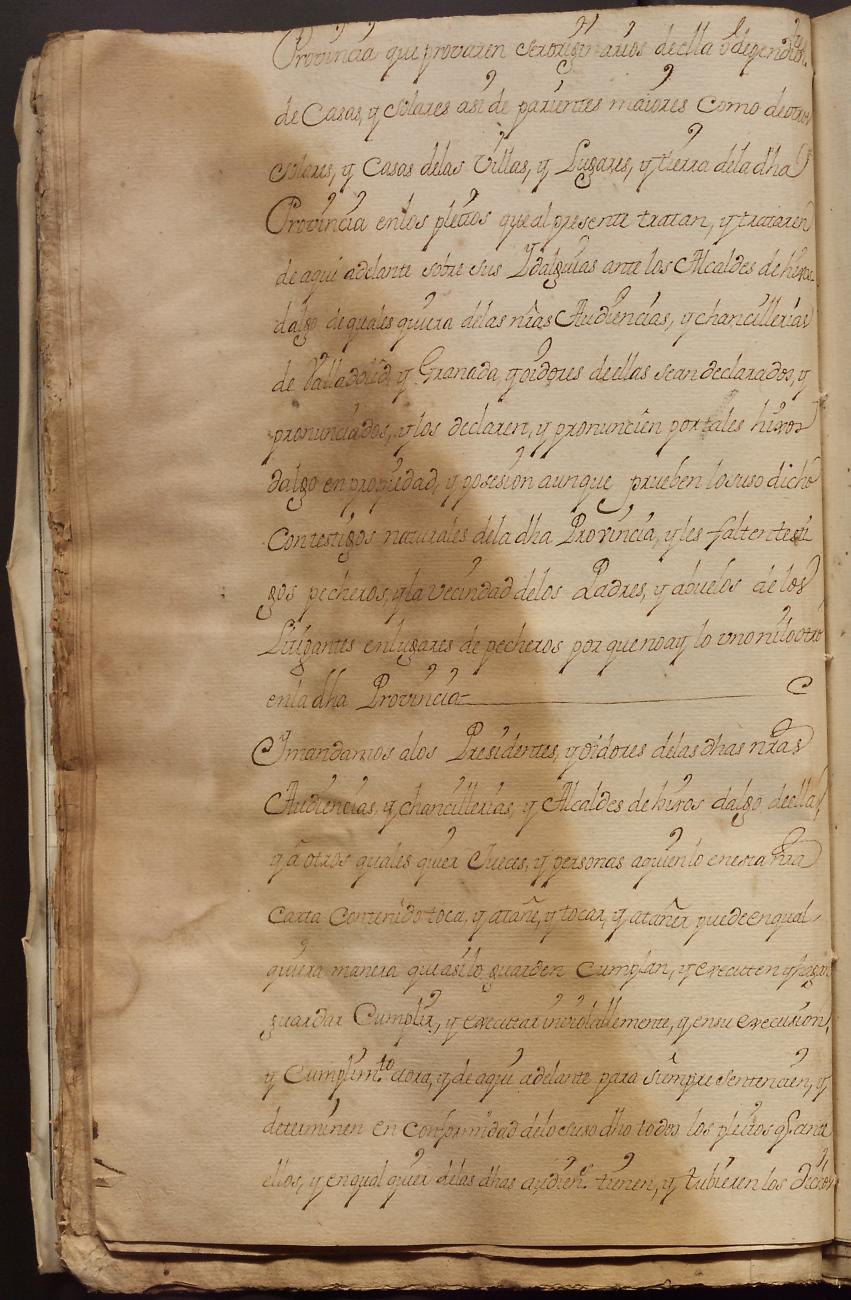 Provincia que provaren ser originarios de ella o degendtes.
de Casas, y solares asi de parientes maiores Como de otros
solares, y Casas delas Villas, y Lugares, y tierra dela dha
Provincia enlos pleitos que al presente tratan, y trataren
de aqui adelante sobre sus Ydalguias ante los Alcaldes de hixos
dalgo de quales quiera delas nras Audiencias, y chancillerias
de Valladolid, y Granada, y oidores de ellas sean declarados, y
pronunciados, y los declaren, y pronuncien por tales hixos
dalgo en propiedad, y posesion aunque prueben lo suso dicho
Con testigos naturales dela dha Provincia, y les falten testi
gos pecheros, y la vecindad delos Padres, y abuelos de los
Litigantes en lugares de pecheros por que no ay lo uno ni lo otro
en la dha Provincia
I mandamos alos Presidentes, y oidores delas dhas nras
Audiencias, y chancillerias, y Alcaldes de hixos dalgo de ellas,
y a otros quales quier Jueces, y personas a quien lo en esta nra
Carta Contenido toca, y atañe, y tocar, y atañer puede en qual
quiera manera que asi lo guarden Cumplan, y executen y hagan
guardar Cumplir, y executar inviolablemente, y en su execusion,
y Cumplimto aora, y de aqui adelante para siempre sentencien, y
determinen en Conformidad delo suso dho todos los pleitos q ante
ellos, y en qual quier delas dhas audiens tienen, y tubieren los dichos